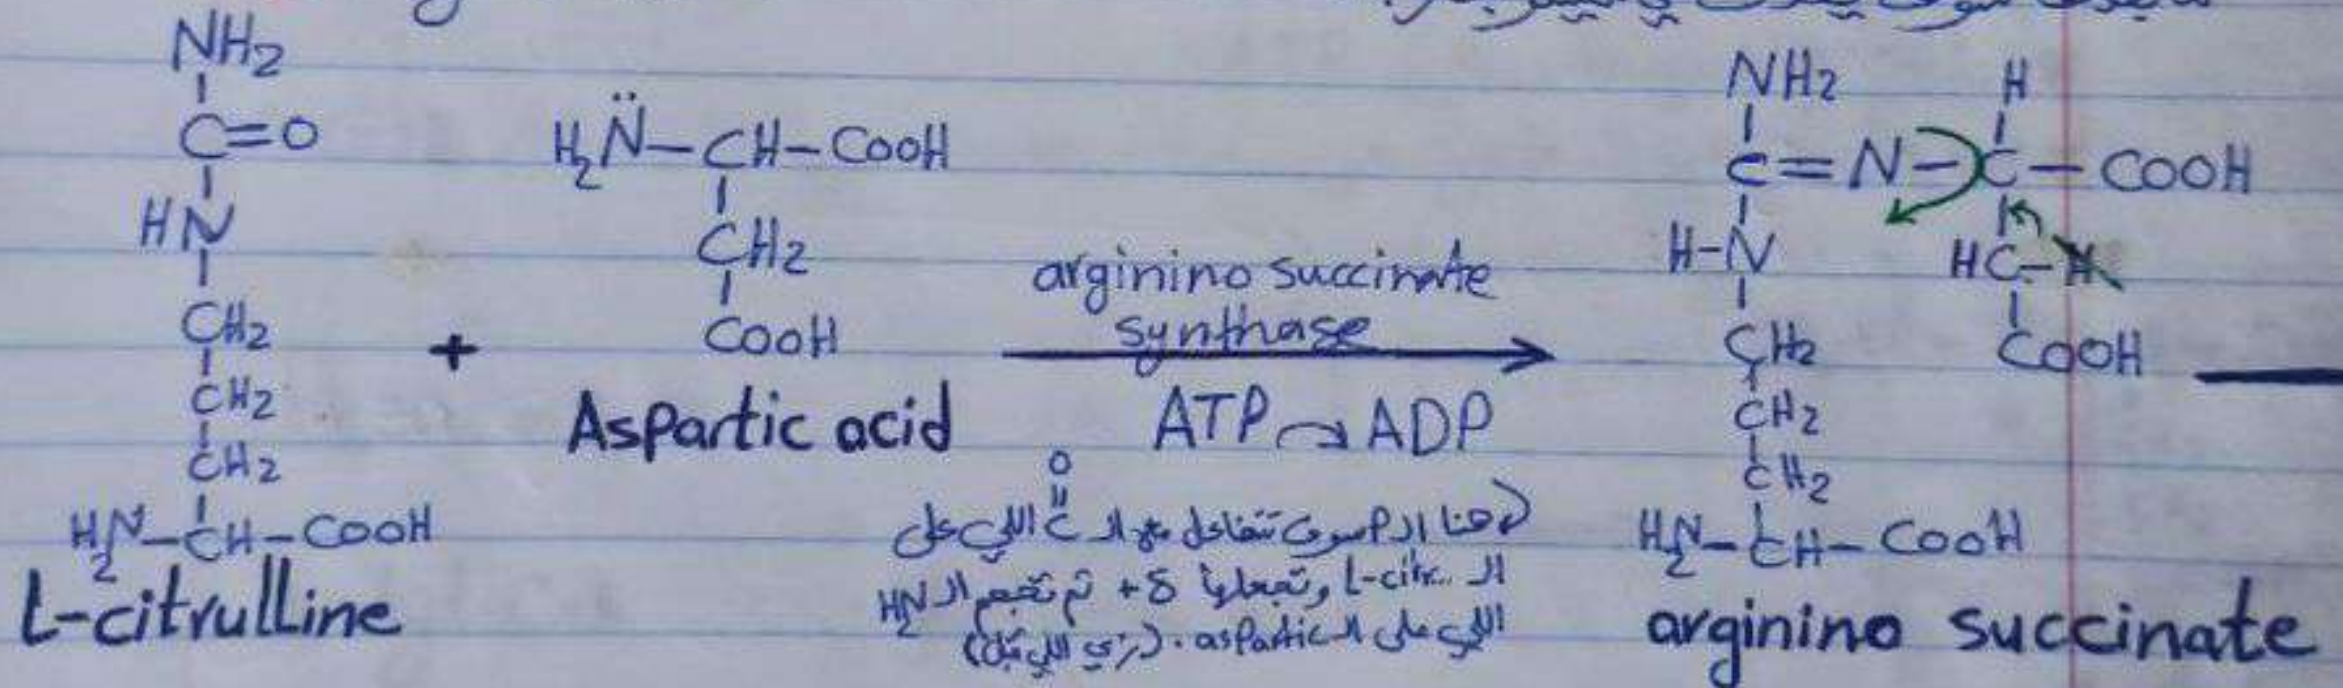 NH2
C=O
HN
CH2
CH2
CH2
H2N-CH-COOH
L-citrulline
+
H2N̈-CH-COOH
CH2
COOH
Aspartic acid
arginino succinate
synthase
ATP → ADP
O
هنا الـ P سوف تتفاعل مع الـ C اللي على
الـ L-citr. وتجعلها δ+ ثم تهجم الـ H2N
اللي على الـ aspartic. (زي اللي قبل)
NH2 H
C=N-C-COOH
H-N HC-H
CH2 COOH
CH2
CH2
H2N-CH-COOH
arginino succinate